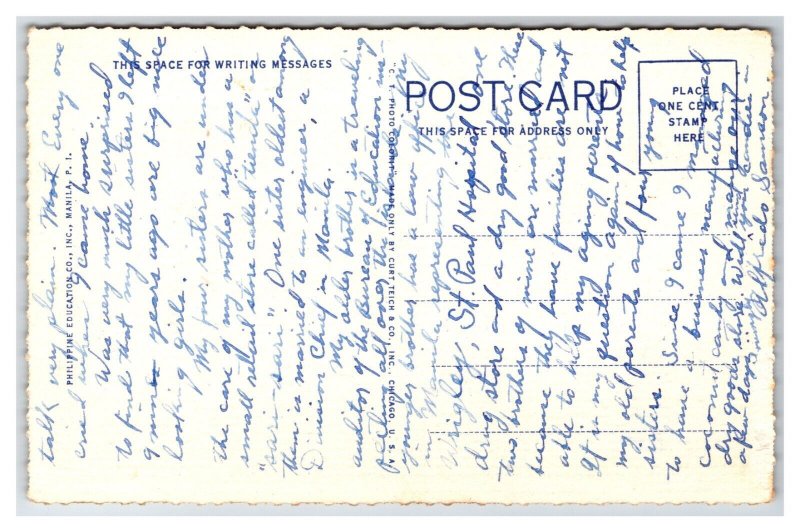 THIS SPACE FOR WRITING MESSAGES
POST CARD
THIS SPACE FOR ADDRESS ONLY
PLACE
ONE CENT
STAMP
HERE
PHILIPPINE EDUCATION CO., INC., MANILA, P. I.
"C. T. PHOTO COLORIT" MADE ONLY BY CURT TEICH & CO., INC., CHICAGO, U. S. A.
talk very plain. Most Every one
cried when I came home.
Was very much surprised
to find that my little sisters I left
9 years ago are big nice
looking girls.
My four sisters are under
the care of my mother who has a
small retail store called "tienda" or
"sari-sari". One sister oldest among
them is married to an engineer, a
Division Chief in Manila.
My older brother is a traveling
auditor of the Bureau of Education
all over the
younger brother has a law office
in Manila representing the
Wrigley, St. Paul Hospital, one
drug store and a dry good store. These
two brothers of mine are married and
because they have families are not
able to help my aging parents.
It is my question again of how to help
my old parents and four young
sisters. Since I came I
to have a business manufactured
coconut candy and
dry goods store. Will
after days
Alfredo Samson.